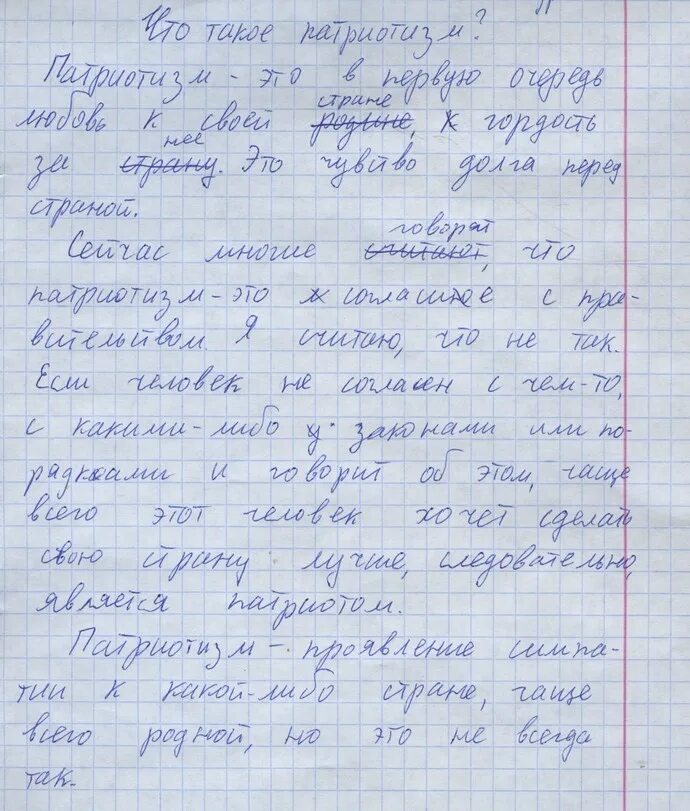 Что такое патриотизм?
Патриотизм - это в первую очередь
стране
любовь к своей родине, к гордость
нее
за страну. Это чувство долга перед
страной.
говорят
Сейчас многие считают, что
патриотизм - это согласие с пра-
вительством. Я считаю, что не так.
Если человек не согласен с чем-то,
с какими-либо законами или по-
рядками и говорит об этом, чаще
всего этот человек хочет сделать
свою страну лучше, следовательно,
является патриотом.
Патриотизм - проявление симпа-
тии к какой-либо стране, чаще
всего родной, но это не всегда
так.